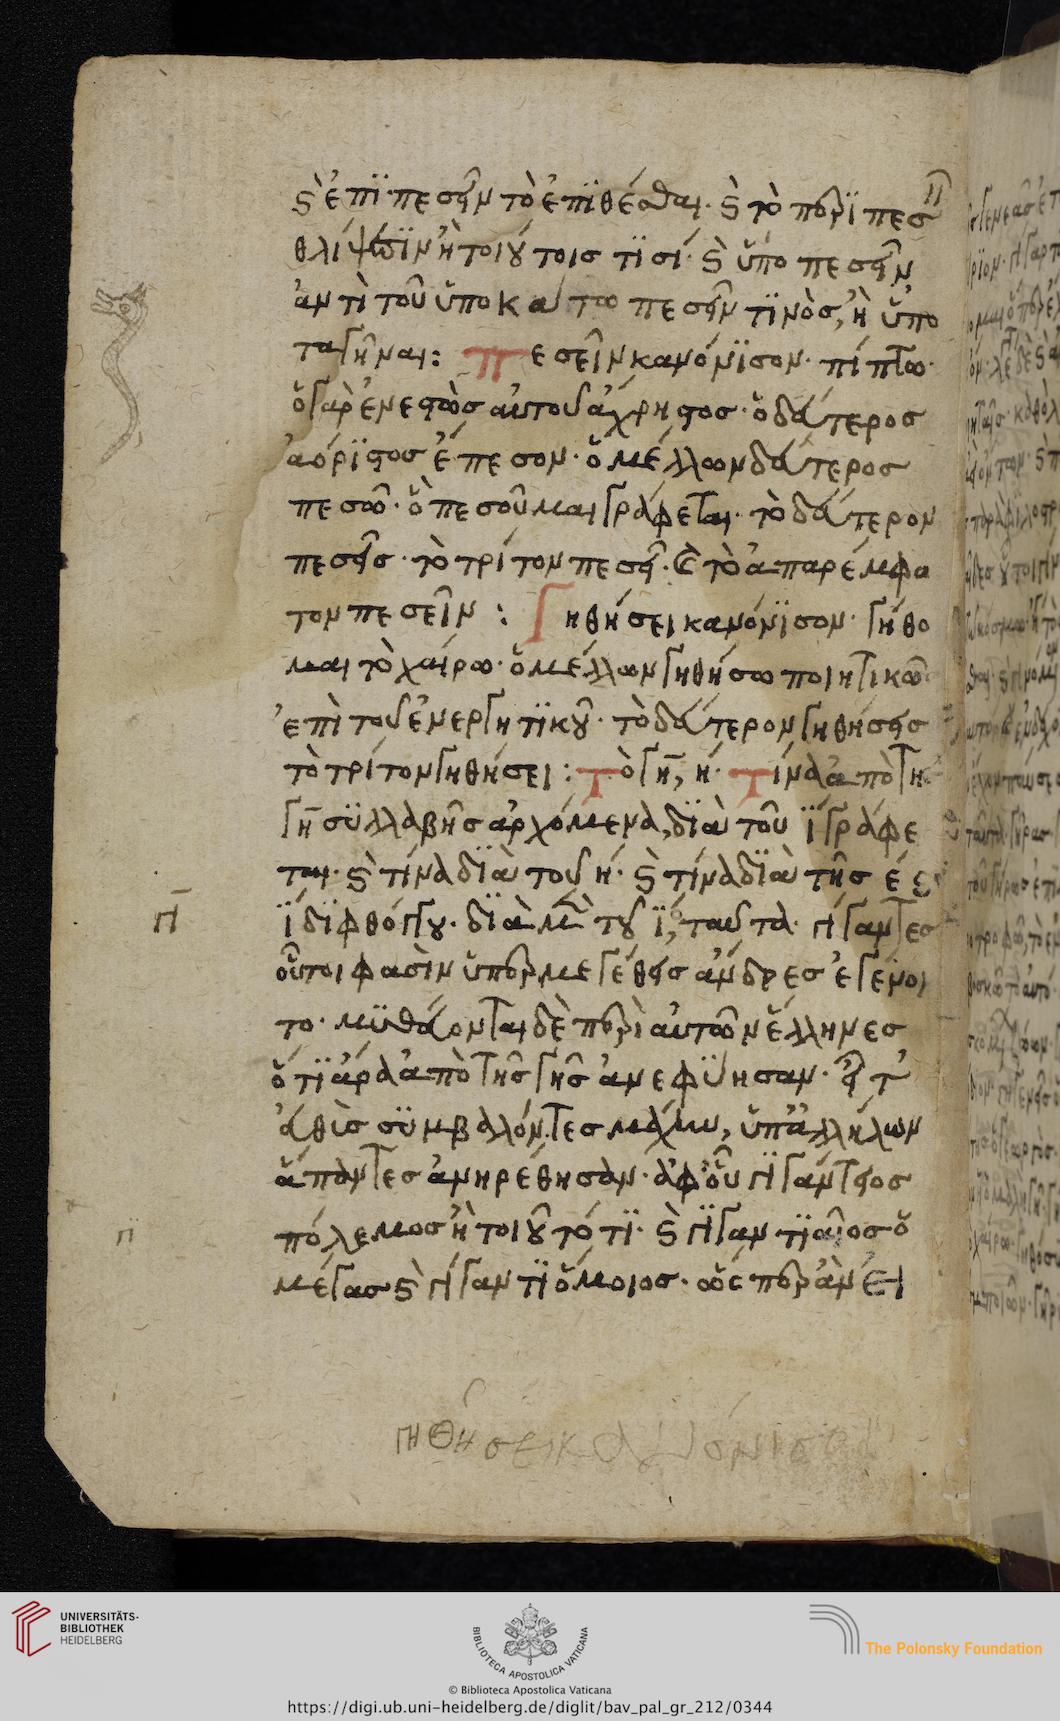 ϛ ἐπϊπεσεῖν τὸ ἐπϊθέσθαι· ϛ τὸ περϊπεσεῖν
θλίψεσϊν ἢ τοιούτοις τϊσί· ϛ ὑποπεσεῖν
ἀντὶ τοῦ ὑποκάτω πεσεῖν τϊνὸς, ἢ ὑπο
ταγῆναι: Πεσεῖν κανόνϊσον· πίπτω·
ὁ γὰρ ἐνεστὼς αὐτοῦ ἄχρηστος· ὁ δεύτερος
ἀόρϊστος ἔπεσον· ὁ μέλλων δεύτερος
πεσῶ· ὃ πεσοῦμαι γράφεται· τὸ δεύτερον
πεσεῖς· τὸ τρίτον πεσεῖ· τὸ ἀπαρέμφα
τον πεσεῖν: Γηθήσει κανόνϊσον· γήθο
μαι τὸ χαίρω· ὁ μέλλων γηθήσω ποιητικῶς
ἐπὶ τοῦ ἐνεργητϊκοῦ· τὸ δεύτερον γηθήσεις
τὸ τρίτον γηθήσει: Τὸ γη, η· Τίνα ἀπὸ τῆς
γη σϋλλαβῆς ἀρχόμενα, δϊὰ τοῦ ϊ γράφε
ται· ϛ τίνα δϊὰ τοῦ η· ϛ τίνα δϊὰ τῆς ει
γϊ
ϊ δϊφθόγγου· δϊὰ μὲν τοῦ ϊ, ταῦτα· γίγαντες
οὗτοι φασὶν ὑπερμεγέθεις ἄνδρες ἐγένον
το· μϋθεύονται δὲ περὶ αὐτῶν ἕλληνες
ὅτϊ ἄρα ἀπὸ τῆς γῆς ἀνεφϋησαν·
εὐθὺς σϋμβαλόντες μάχην, ὑπ' ἀλλήλων
ἅπαντες ἀνηρέθησαν· ἀφ' οὗ γϊγάντειος
γϊ
πόλεμος ἢ τοιοῦτό τϊ· ϛ γϊγαντϊαῖος ὁ
μέγας ϛ γίγαντϊ ὅμοιος· ὥσπερ ἀνεὶ
γηθήσει κανόνισον
UNIVERSITÄTS-
BIBLIOTHEK
HEIDELBERG
BIBLIOTECA APOSTOLICA VATICANA
The Polonsky Foundation
© Biblioteca Apostolica Vaticana
https://digi.ub.uni-heidelberg.de/diglit/bav_pal_gr_212/0344